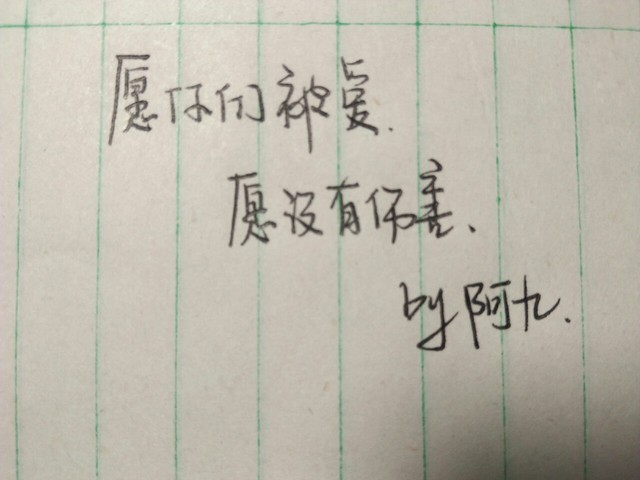 愿你们被爱.
愿没有伤害.
by阿九.